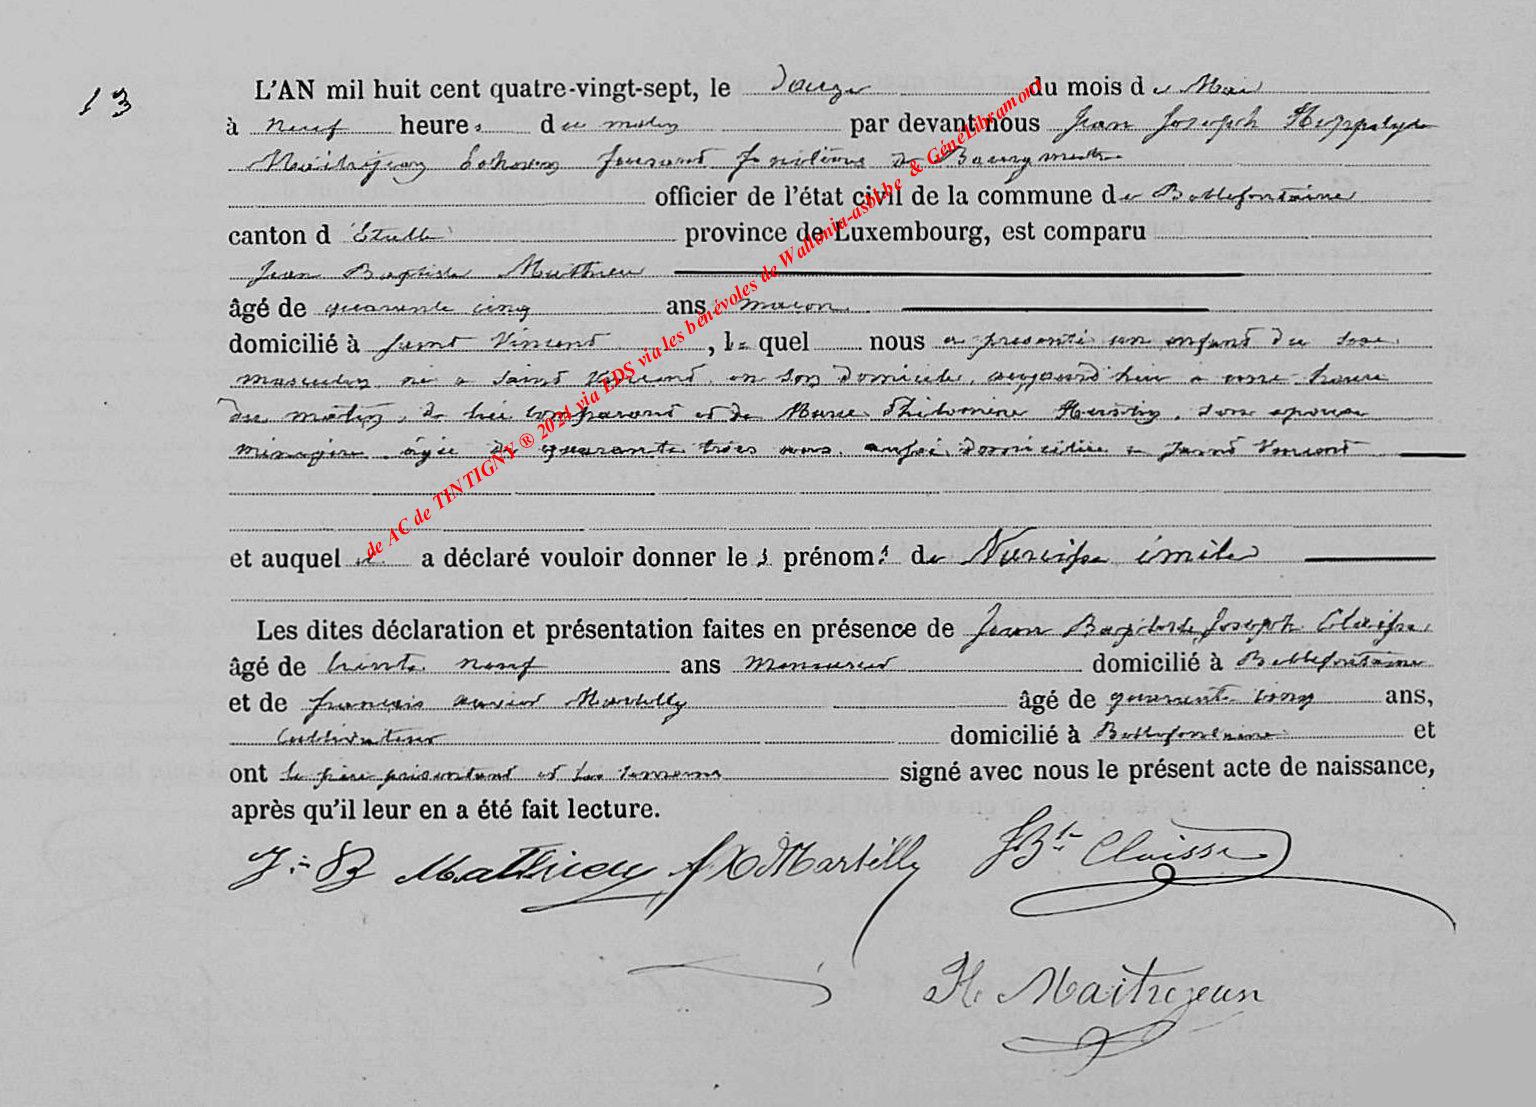 13
L'AN mil huit cent quatre-vingt-sept, le douze du mois de Mai
à neuf heures du matin par devant nous Jean Joseph Hyppolyte
Maitrejean Echevin faisant fonctions de Bourgmestre
officier de l'état civil de la commune de Bellefontaine
canton d'Etalle province de Luxembourg, est comparu
Jean Baptiste Mathieu
âgé de quarante cinq ans macon
domicilié à Saint Vincent, lequel nous a presenté un enfant du sexe
masculin né a Saint Vincent en son domicile, aujourd'hui a une heure
du matin, de lui comparant et de Marie Philomène son epouse
ménagère agée de quarante trois ans, aussi domiciliée a Saint Vincent
et auquel il a déclaré vouloir donner les prénoms de Narcisse émile
Les dites déclaration et présentation faites en présence de Jean Baptiste Joseph Claisse
âgé de trente neuf ans Menuisier domicilié à Bellefontaine
et de françois xavier Martilly âgé de quarante cinq ans,
Cultivateur domicilié à Bellefontaine et
ont le père présentant et les temoins signé avec nous le présent acte de naissance,
après qu'il leur en a été fait lecture.
J:B Mathieu fX Martilly JBte Claisse
H Maitrejean
de AC de TINTIGNY ® 2021 via EDS via les bénévoles de Wallonia-asbl.be & GénéLibramont